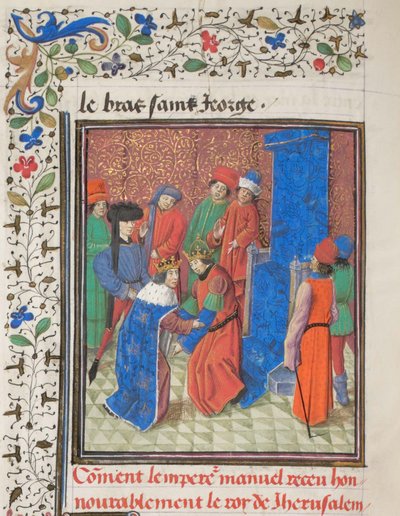 le brac saint george .
Co̅ment lempere͛ manuel receu hon
nourablement le roy de Jherusalem